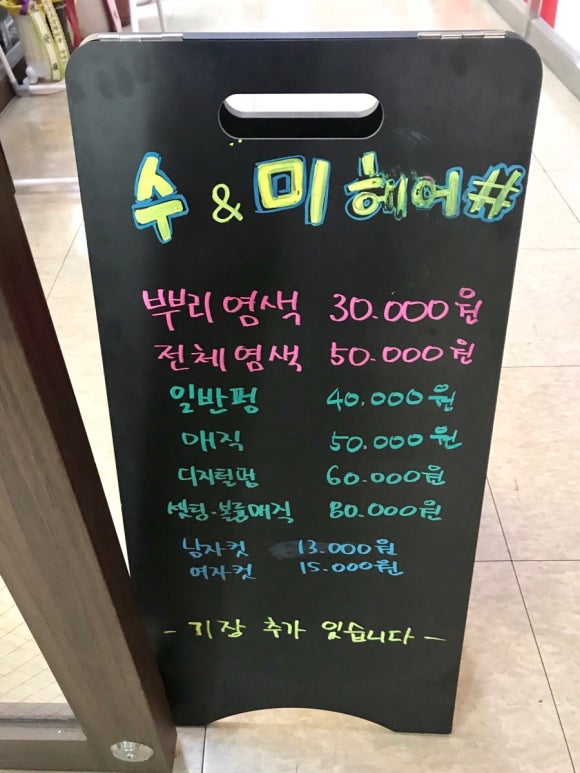 수 & 미 헤어#
뿌리염색 30.000원
전체염색 50.000원
일반펌 40.000원
매직 50.000원
디지털펌 60.000원
셋팅.볼륨매직 80.000원
남자컷 13.000원
여자컷 15.000원
- 기장 추가 있습니다 -